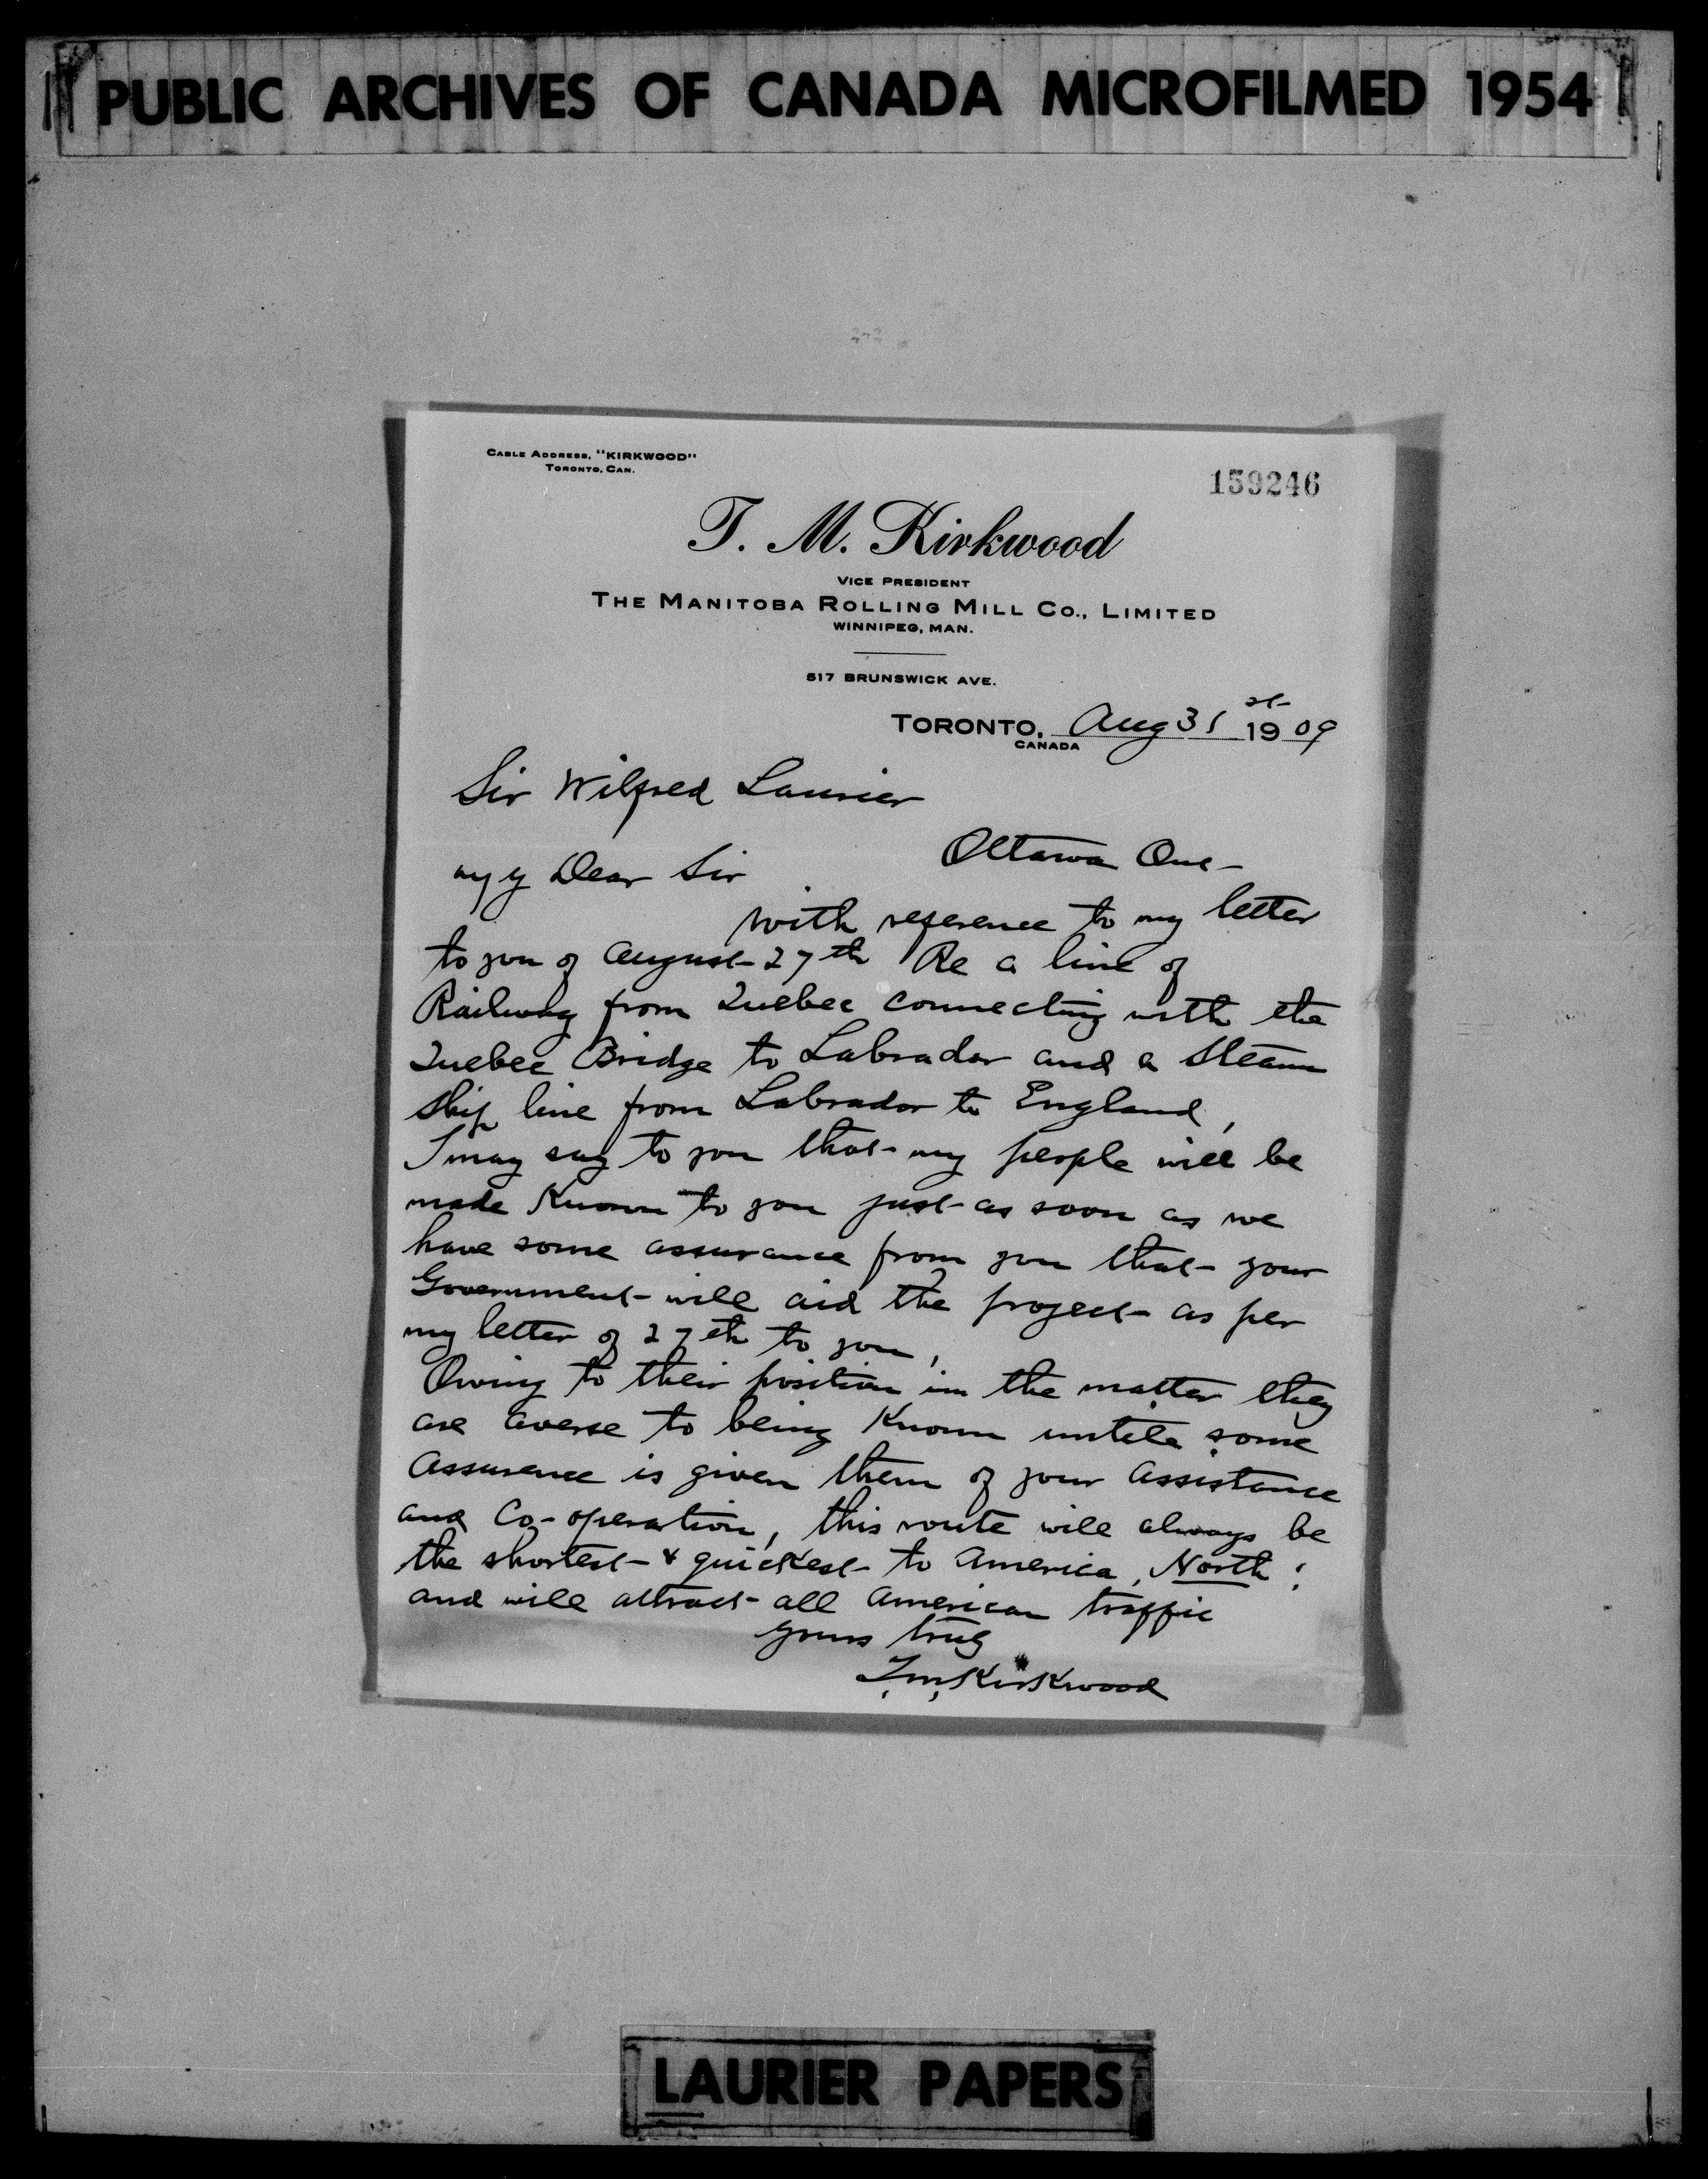 PUBLIC ARCHIVES OF CANADA MICROFILMED 1954
CABLE ADDRESS, "KIRKWOOD"
TORONTO, CAN.
159246
T. M. Kirkwood
VICE PRESIDENT
THE MANITOBA ROLLING MILL CO., LIMITED
WINNIPEG, MAN.
517 BRUNSWICK AVE.
TORONTO, Aug 31st 1909
CANADA
Sir Wilfred Laurier
Ottawa Ont-
My Dear Sir
with reference to my letter
to you of August 27th Re a line of
Railway from Quebec connecting with the
Quebec Bridge to Labrador and a Steam
ship line from Labrador to England,
I may say to you that my people will be
made Known to you just as soon as we
have some assurance from you that your
Government will aid the project as per
my letter of 27th to you,
Owing to their position in the matter they
are averse to being Known until some
Assurance is given them of your Assistance
and Co-operation, this route will always be
the shortest & quickest to America, North;
and will attract all American traffic
yours truly
T.M. Kirkwood
LAURIER PAPERS